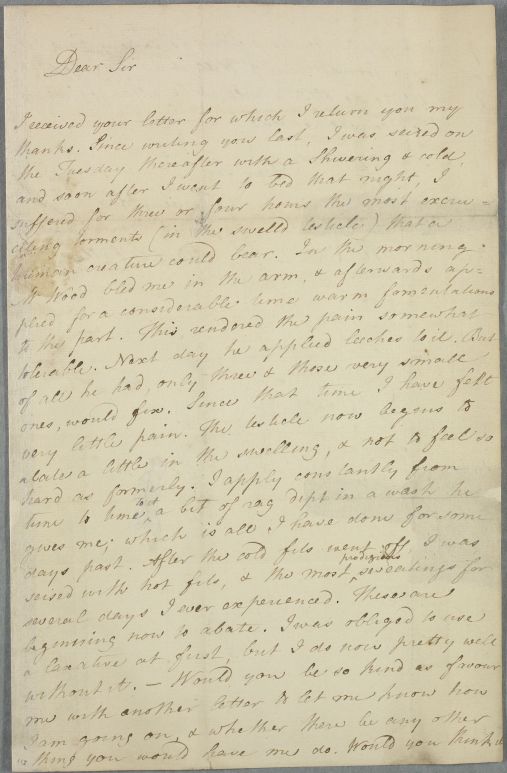 Dear Sir
I received your letter for which I return you my
thanks. Since writing you last, I was seized on
the Tuesday thereafter with a Shivering & cold,
and soon after I went to bed that night, I
suffered for three or four hours the most excru=
ciating torments (in the swelld testicle) that a
human creature could bear. In the morning
Mr Wood bled me in the arm, & afterwards ap=
plied for a considerable time warm fomentations
to the part. This rendered the pain somewhat
tolerable. Next day he applied leeches to it. But
of all he had, only three & those very small
ones, would fix. Since that time I have felt
very little pain. The testicle now begins to
abate a little in the swelling, & not to feel so
hard as formerly. I apply constantly from
time to time, to it a bit of rag dipt in a wash he
gives me; which is all I have done for some
days past. After the cold fits went off, I was
seised with hot fits, & the most prodigious sweatings for
several days I ever experienced. These are
beginning now to abate. I was obliged to use
a laxative at first, but I do now pretty well
without it. — Would you be so kind as favour
me with another letter to let me know how
I am going on, & whether there be any other
thing you would have me do. Would you think it